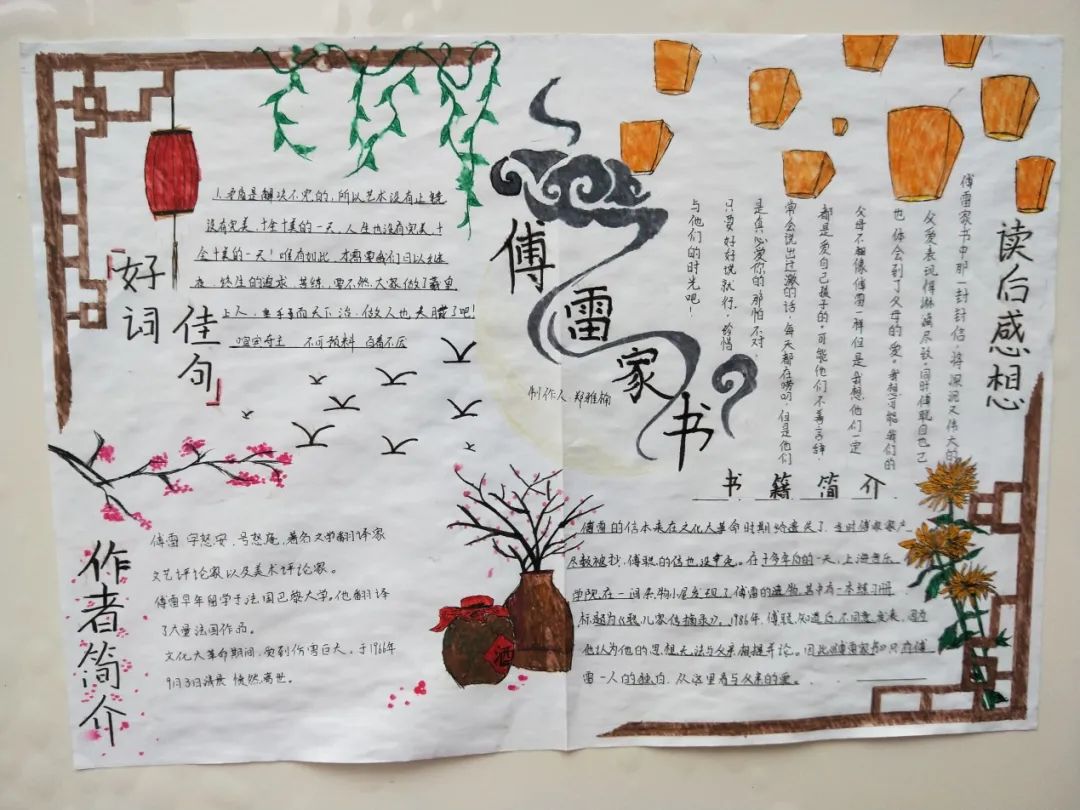 傅雷家书
制作人:郑雅
「好词佳句」
人矛盾是解决不完的,所以艺术没有止境
没有完美,十全十美的一天,人生也没有完美十
全十美的一天!唯有如此,才需要我们日以继
夜,终生的追求、苦练,要不然大家做了羲皇
上人,垂手而天下治,做人也太腻了吧!
喧宾夺主 不可预料 百看不厌
读后感想
傅雷家书中那一封封信,将深沉又伟大的
父爱表现得淋漓尽致。同时傅聪自也己
也体会到了父母的爱。我想可能我们的
父母不想像傅雷一样但是我想他们一定
都是爱自己孩子的。可能他们不善言辞,
常会说出过激的话,每天都在唠叨,但是他们
是真心爱你的那怕不对,
只要好好说就行,珍惜
与他们的时光吧!
作者简介
傅雷 字怒安,号怒庵,著名文学翻译家
文艺评论家以及美术评论家。
傅雷早年留学于法国巴黎大学。他翻译
了大量法国作品。
文化大革命期间,受到伤害巨大,于1966年
9月3日凌晨 愤然离世。
酒
书籍简介
傅雷的信本来在文化大革命时期给遗失了,当时傅家家产
尽数被抄,傅聪的信也没幸免。在十多年后的一天,上海音乐
学院,在一间杂物小屋发现了傅雷的遗物,其中有一本练习册
标题为《聪儿家信摘录》。1986年,傅聪知道后,不同意发表,因为
他认为他的思想无法与父亲相提并论。因此《傅雷家书》只有傅
雷一人的独白,从这里看与父亲的爱。